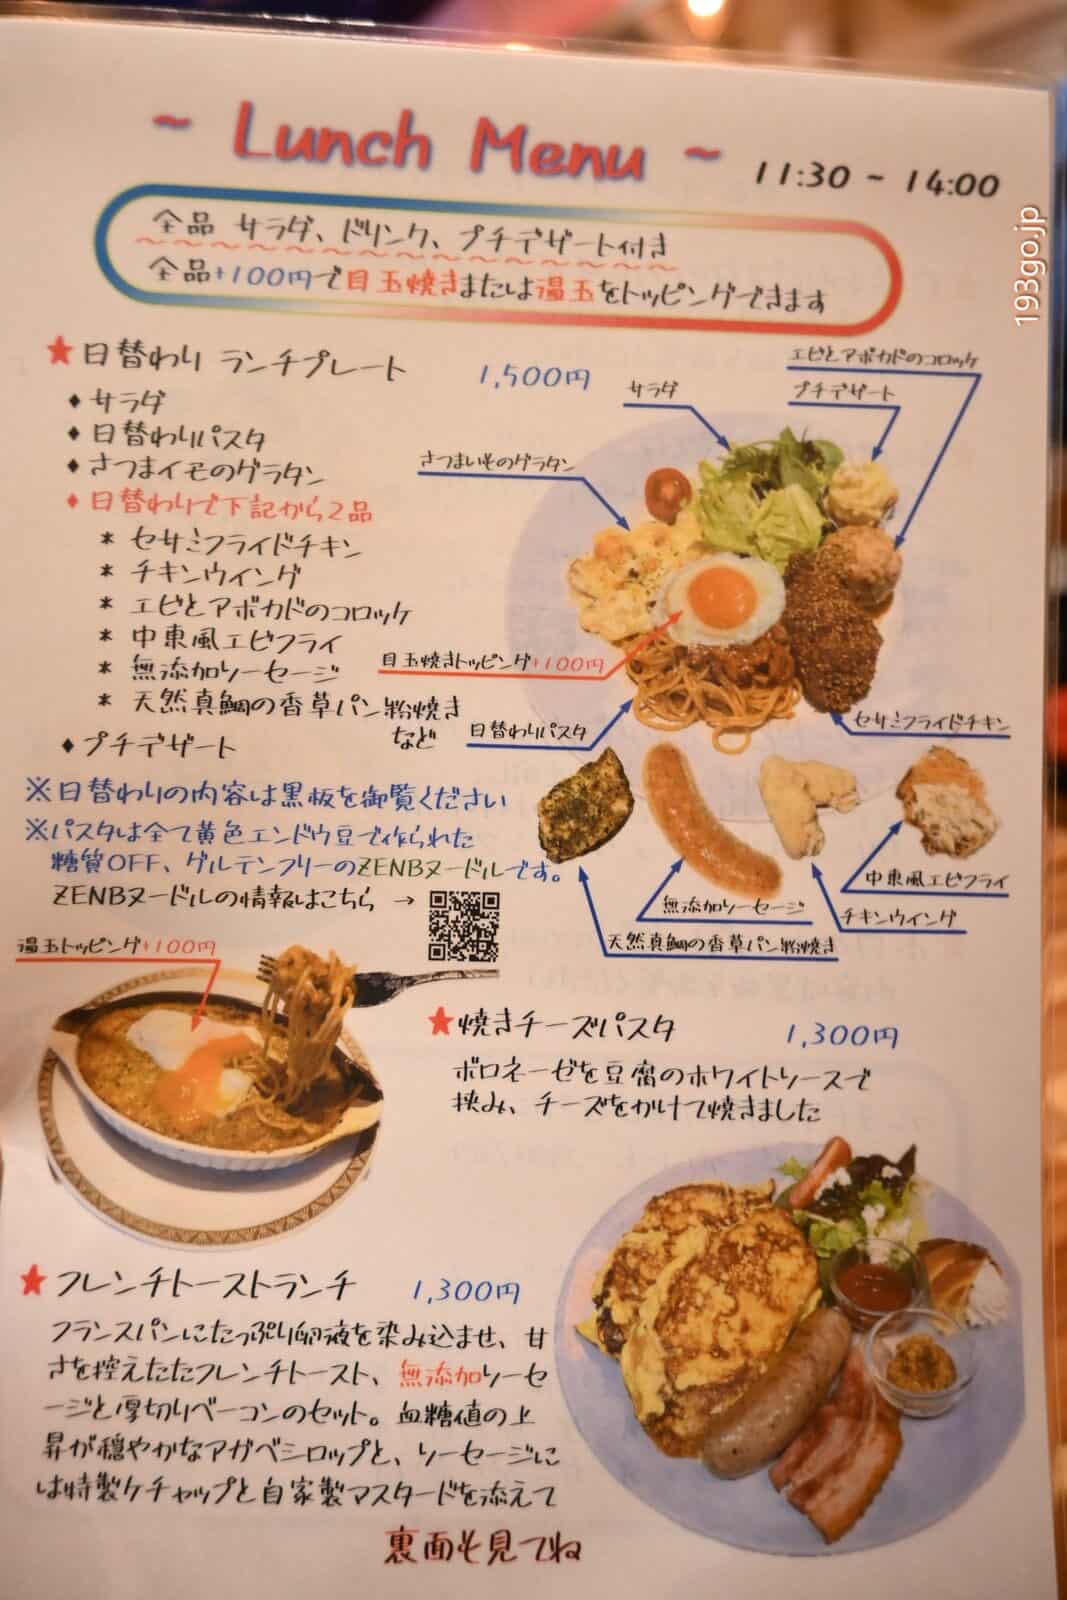 ~ Lunch Menu ~ 11:30 ~ 14:00
全品 サラダ、ドリンク、プチデザート付き
全品+100円で目玉焼きまたは温玉をトッピングできます
193go.jp
★日替わり ランチプレート 1,500円
♦サラダ
♦日替わりパスタ
♦さつまイモのグラタン
♦日替わりで下記から2品
* セサミフライドチキン
* チキンウイング
* エビとアボカドのコロッケ
* 中東風エビフライ
* 無添加ソーセージ
* 天然真鯛の香草パン粉焼き
など
♦プチデザート
エビとアボカドのコロッケ
プチデザート
サラダ
さつまいものグラタン
目玉焼きトッピング+100円
日替わりパスタ
セサミフライドチキン
中東風エビフライ
チキンウイング
無添加ソーセージ
天然真鯛の香草パン粉焼き
※日替わりの内容は黒板を御覧ください
※パスタは全て黄色エンドウ豆で作られた
糖質OFF、グルテンフリーのZENBヌードルです。
ZENBヌードルの情報はこちら →
温玉トッピング+100円
★焼きチーズパスタ 1,300円
ボロネーゼを豆腐のホワイトソースで
挟み、チーズをかけて焼きました
★フレンチトーストランチ 1,300円
フランスパンにたっぷり卵液を染み込ませ、甘
さを控えたたフレンチトースト、無添加ソーセ
ージと厚切りベーコンのセット。血糖値の上
昇が穏やかなアガベシロップと、ソーセージに
は特製ケチャップと自家製マスタードを添えて
裏面も見てね